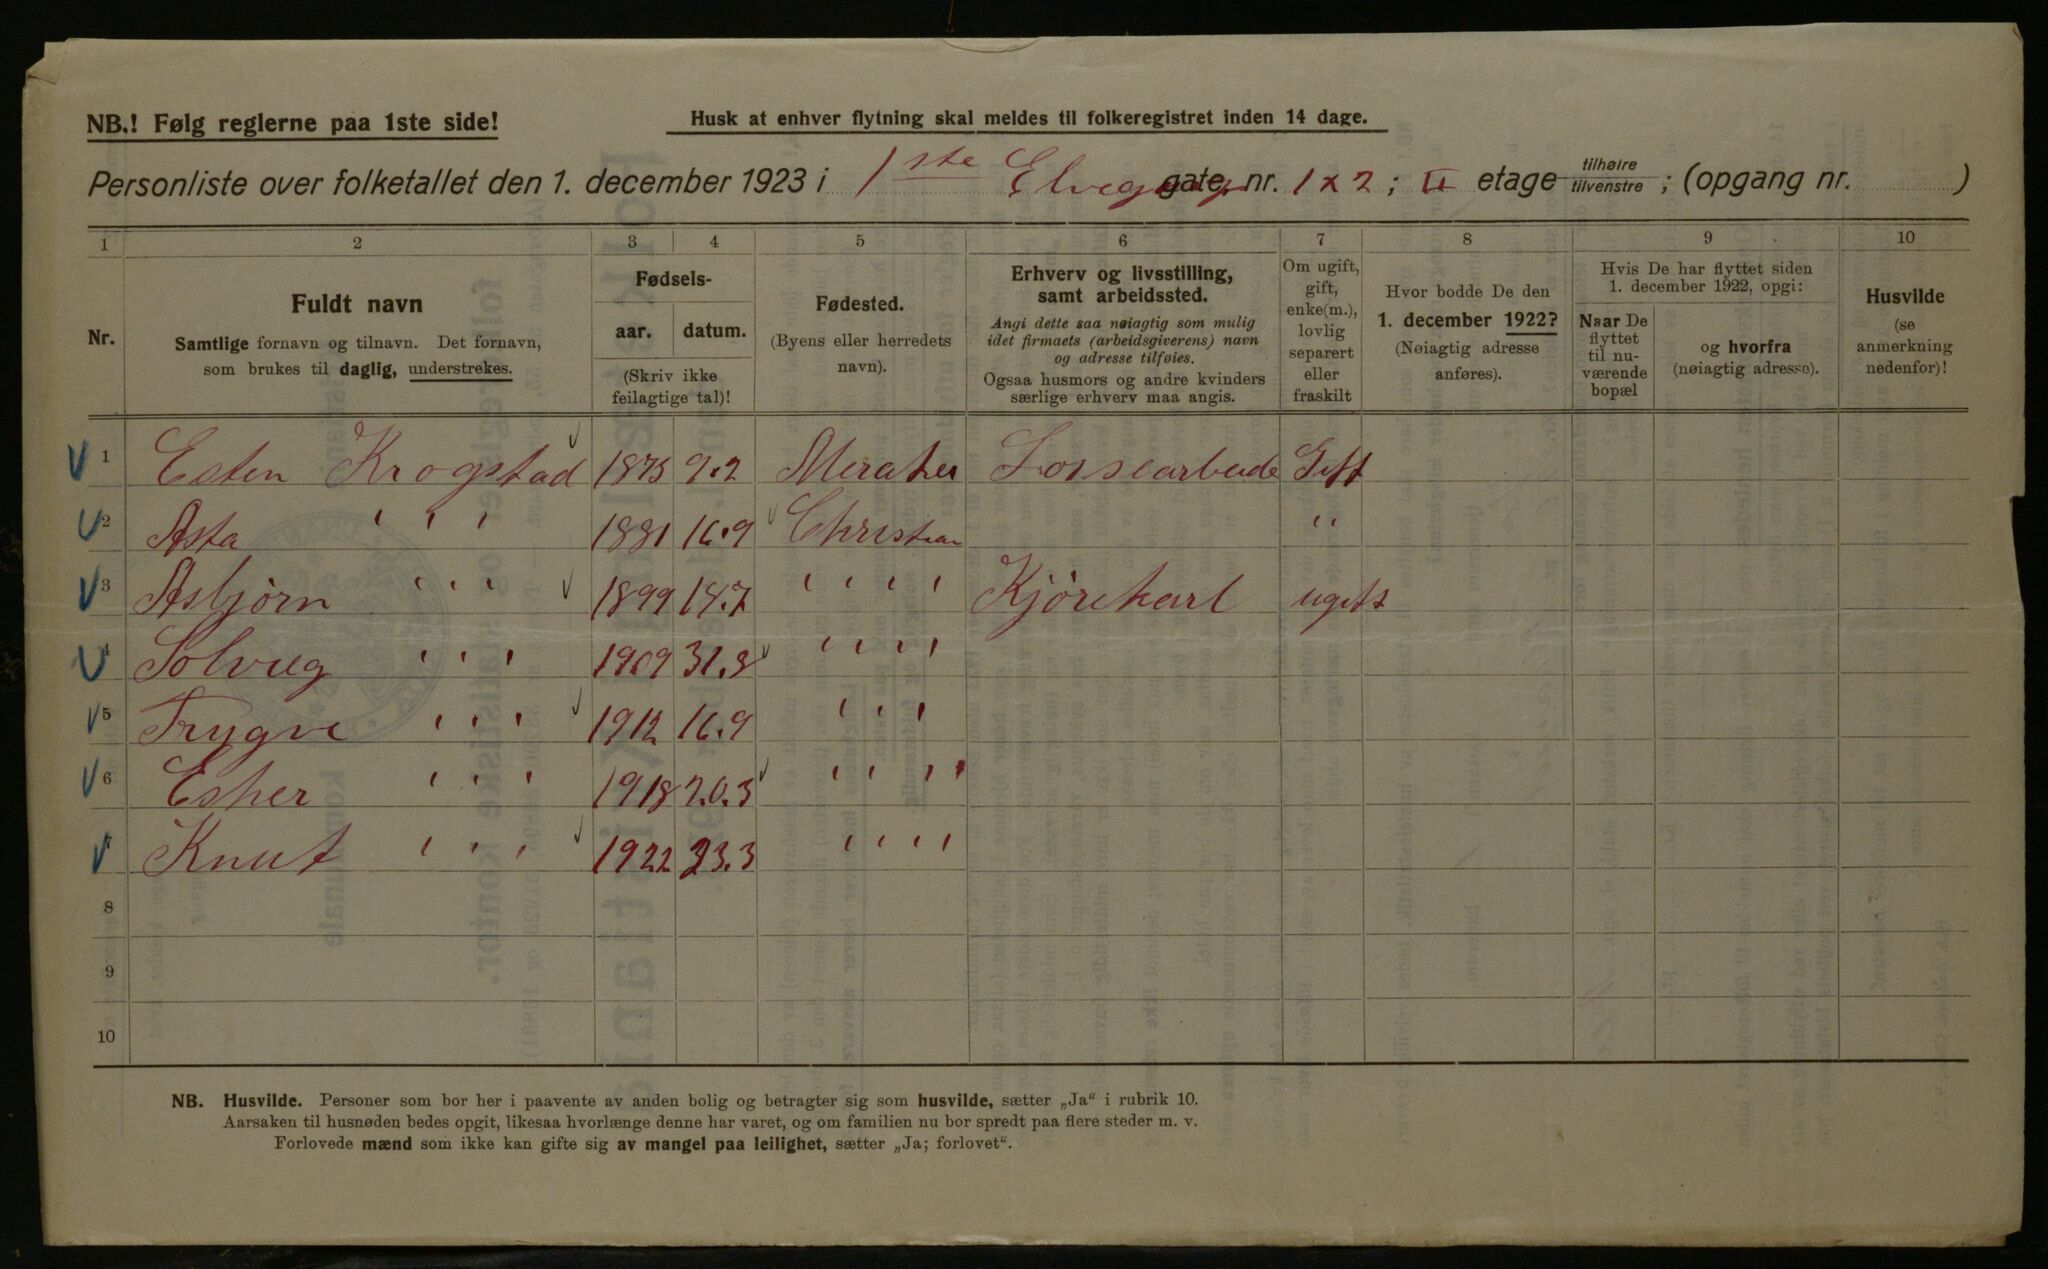 NB.! Følg reglerne paa 1ste side!
Husk at enhver flytning skal meldes til folkeregistret inden 14 dage.
Personliste over folketallet den 1. december 1923 i 1ste Elvegang gate, nr. 1 x 2 ; II etage tilhøire tilvenstre ; (opgang nr. )
1 2 3 4 5 6 7 8 9 10
Nr.
Fuldt navn
Samtlige fornavn og tilnavn. Det fornavn,
som brukes til daglig, understrekes.
Fødsels-
aar. datum.
(Skriv ikke
feilagtige tal)!
Fødested.
(Byens eller herredets
navn).
Erhverv og livsstilling,
samt arbeidssted.
Angi dette saa nøiagtig som mulig
idet firmaets (arbeidsgiverens) navn
og adresse tilføies.
Ogsaa husmors og andre kvinders
særlige erhverv maa angis.
Om ugift,
gift,
enke(m.),
lovlig
separert
eller
fraskilt
Hvor bodde De den
1. december 1922?
(Nøiagtig adresse
anføres).
Hvis De har flyttet siden
1. december 1922, opgi:
Naar De
flyttet
til nu-
værende
bopæl
og hvorfra
(nøiagtig adresse).
Husvilde
(se
anmerkning
nedenfor)!
1 Esten Krogstad 1875 9.2 Meraker Lossearbeide Gift
2 Asta " " " 1881 16.9 Christian "
3 Asbjørn " " " 1899 14.7 " " " " Kjørekarl ugift
4 Solveig " " " 1909 31.3 " " " "
5 Trygve " " " 1912 16.9 " " "
6 Esther " " " 1918 20.3 " " " "
7 Knut " " " 1922 23.3 " " " "
8
9
10
NB. Husvilde. Personer som bor her i paavente av anden bolig og betragter sig som husvilde, sætter „Ja“ i rubrik 10.
Aarsaken til husnøden bedes opgit, likesaa hvorlænge denne har varet, og om familien nu bor spredt paa flere steder m. v.
Forlovede mænd som ikke kan gifte sig av mangel paa leilighet, sætter „Ja; forlovet“.